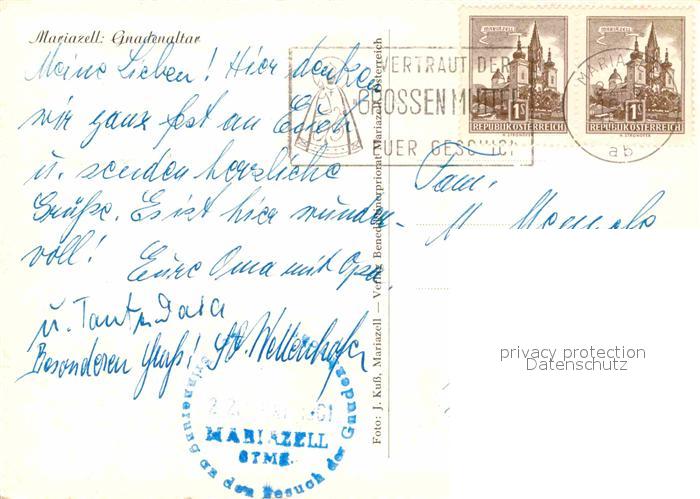 Mariazell: Gnadenaltar
Meine Lieben! Hier denken
wir ganz fest an Euch
u. senden herzliche
Grüße. Es ist hier wunder-
voll!
Eure Oma mit Opa
u. Tante
Besonderen Gruß!
Foto: J. Kuß, Mariazell — Verlag Benediktinerpriorat Mariazell, Österreich
VERTRAUT DER
GROSSEN MUTTER
EUER GESCHICK
MARIAZELL
1S
REPUBLIK ÖSTERREICH
MARIAZELL
1S
REPUBLIK ÖSTERREICH
MARIAZELL
ab
Fam.
M.
privacy protection
Datenschutz
Erinnerung an den Besuch der Gnaden
MARIAZELL
STMK.